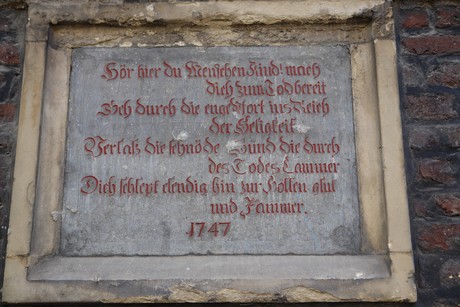 Hör hier du Menschen Kind! mach
dich zum Tod bereit
Geh durch die enge Pfort ins Reich
der Seligkeit
Verlaß die schnöde Sünd die durch
des Todes Cammer
Dich schlept elendig hin zur Höllen glut
und Jammer.
1747